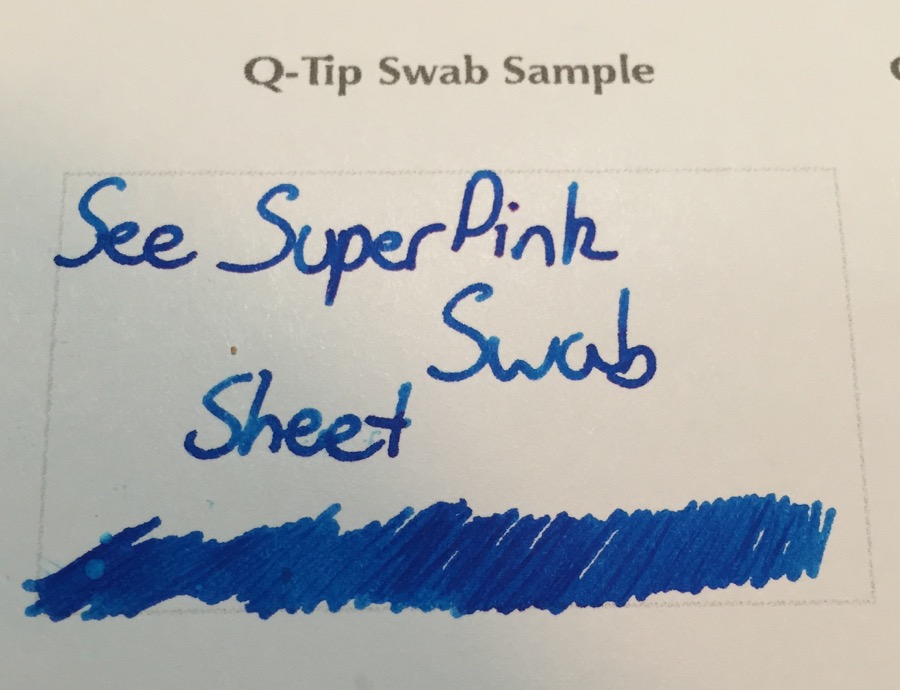 Q-Tip Swab Sample
See SuperPink
Swab
Sheet